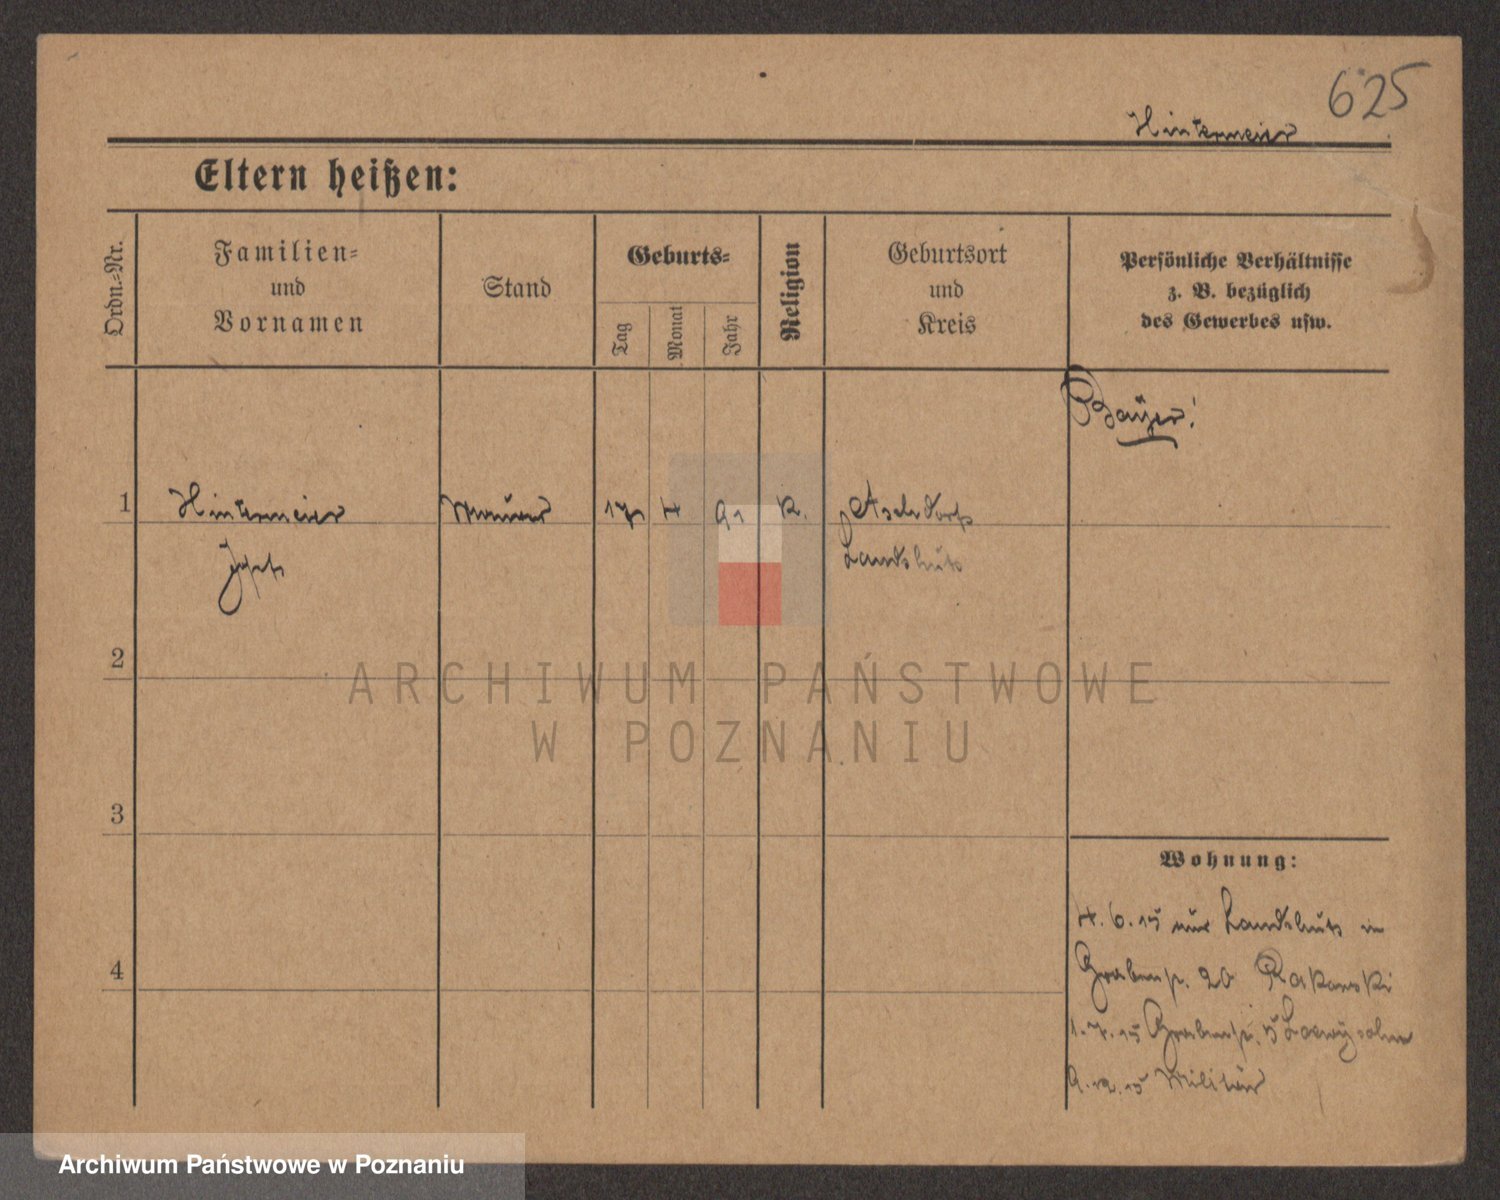 625
Hintermeier
Eltern heißen:
Ordn.=Nr.
Familien=
und
Vornamen
Stand
Geburts=
Tag
Monat
Jahr
Religion
Geburtsort
und
Kreis
Persönliche Verhältnisse
z. B. bezüglich
des Gewerbes usw.
Bayer!
1 Hintermeier Maurer 17 4 91 K.
Josef
Landshut
2
3
4
Wohnung:
4. 6. 15 aus Landshut in
Grabenstr. 20 Rakowski
1. 7. 15 Grabenstr. 5
9. 12. 15 Militär
ARCHIWUM PAŃSTWOWE
W POZNANIU
Archiwum Państwowe w Poznaniu